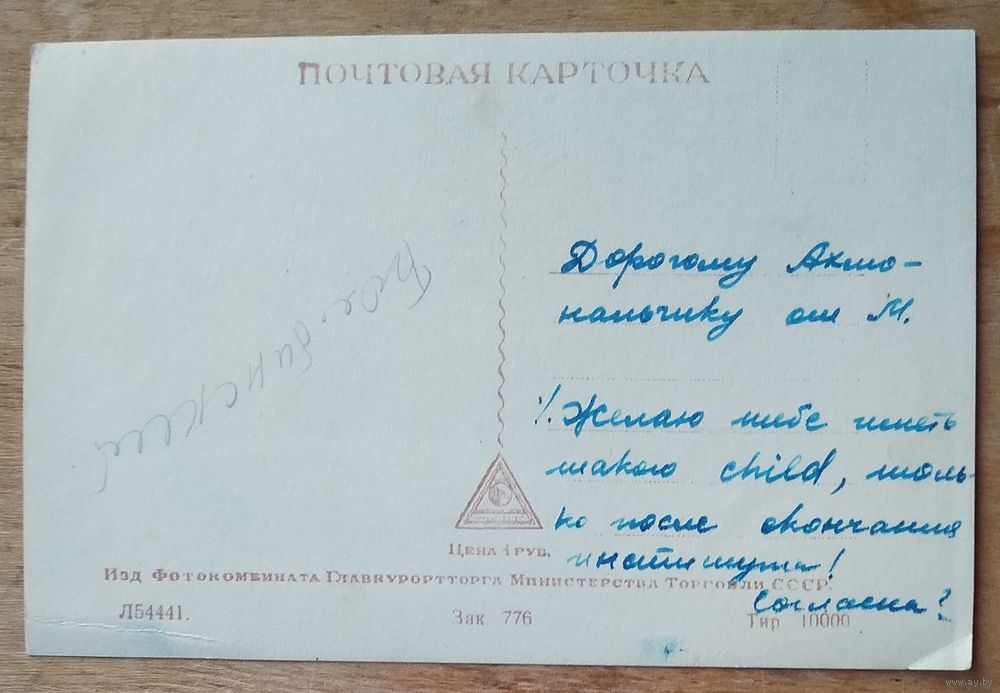 ПОЧТОВАЯ КАРТОЧКА
Дорогому Ахмо-
нальчику от М.
1/. Желаю тебе иметь
такого child, толь-
ко после окончания
института!
Согласна?
ЦЕНА 1 РУБ.
ИЗД ФОТОКОМБИНАТА ГЛАВКУРОРТТОРГА МИНИСТЕРСТВА ТОРГОВЛИ СССР.
Л54441.
Зак. 776
Тир 10000
www.ay.by